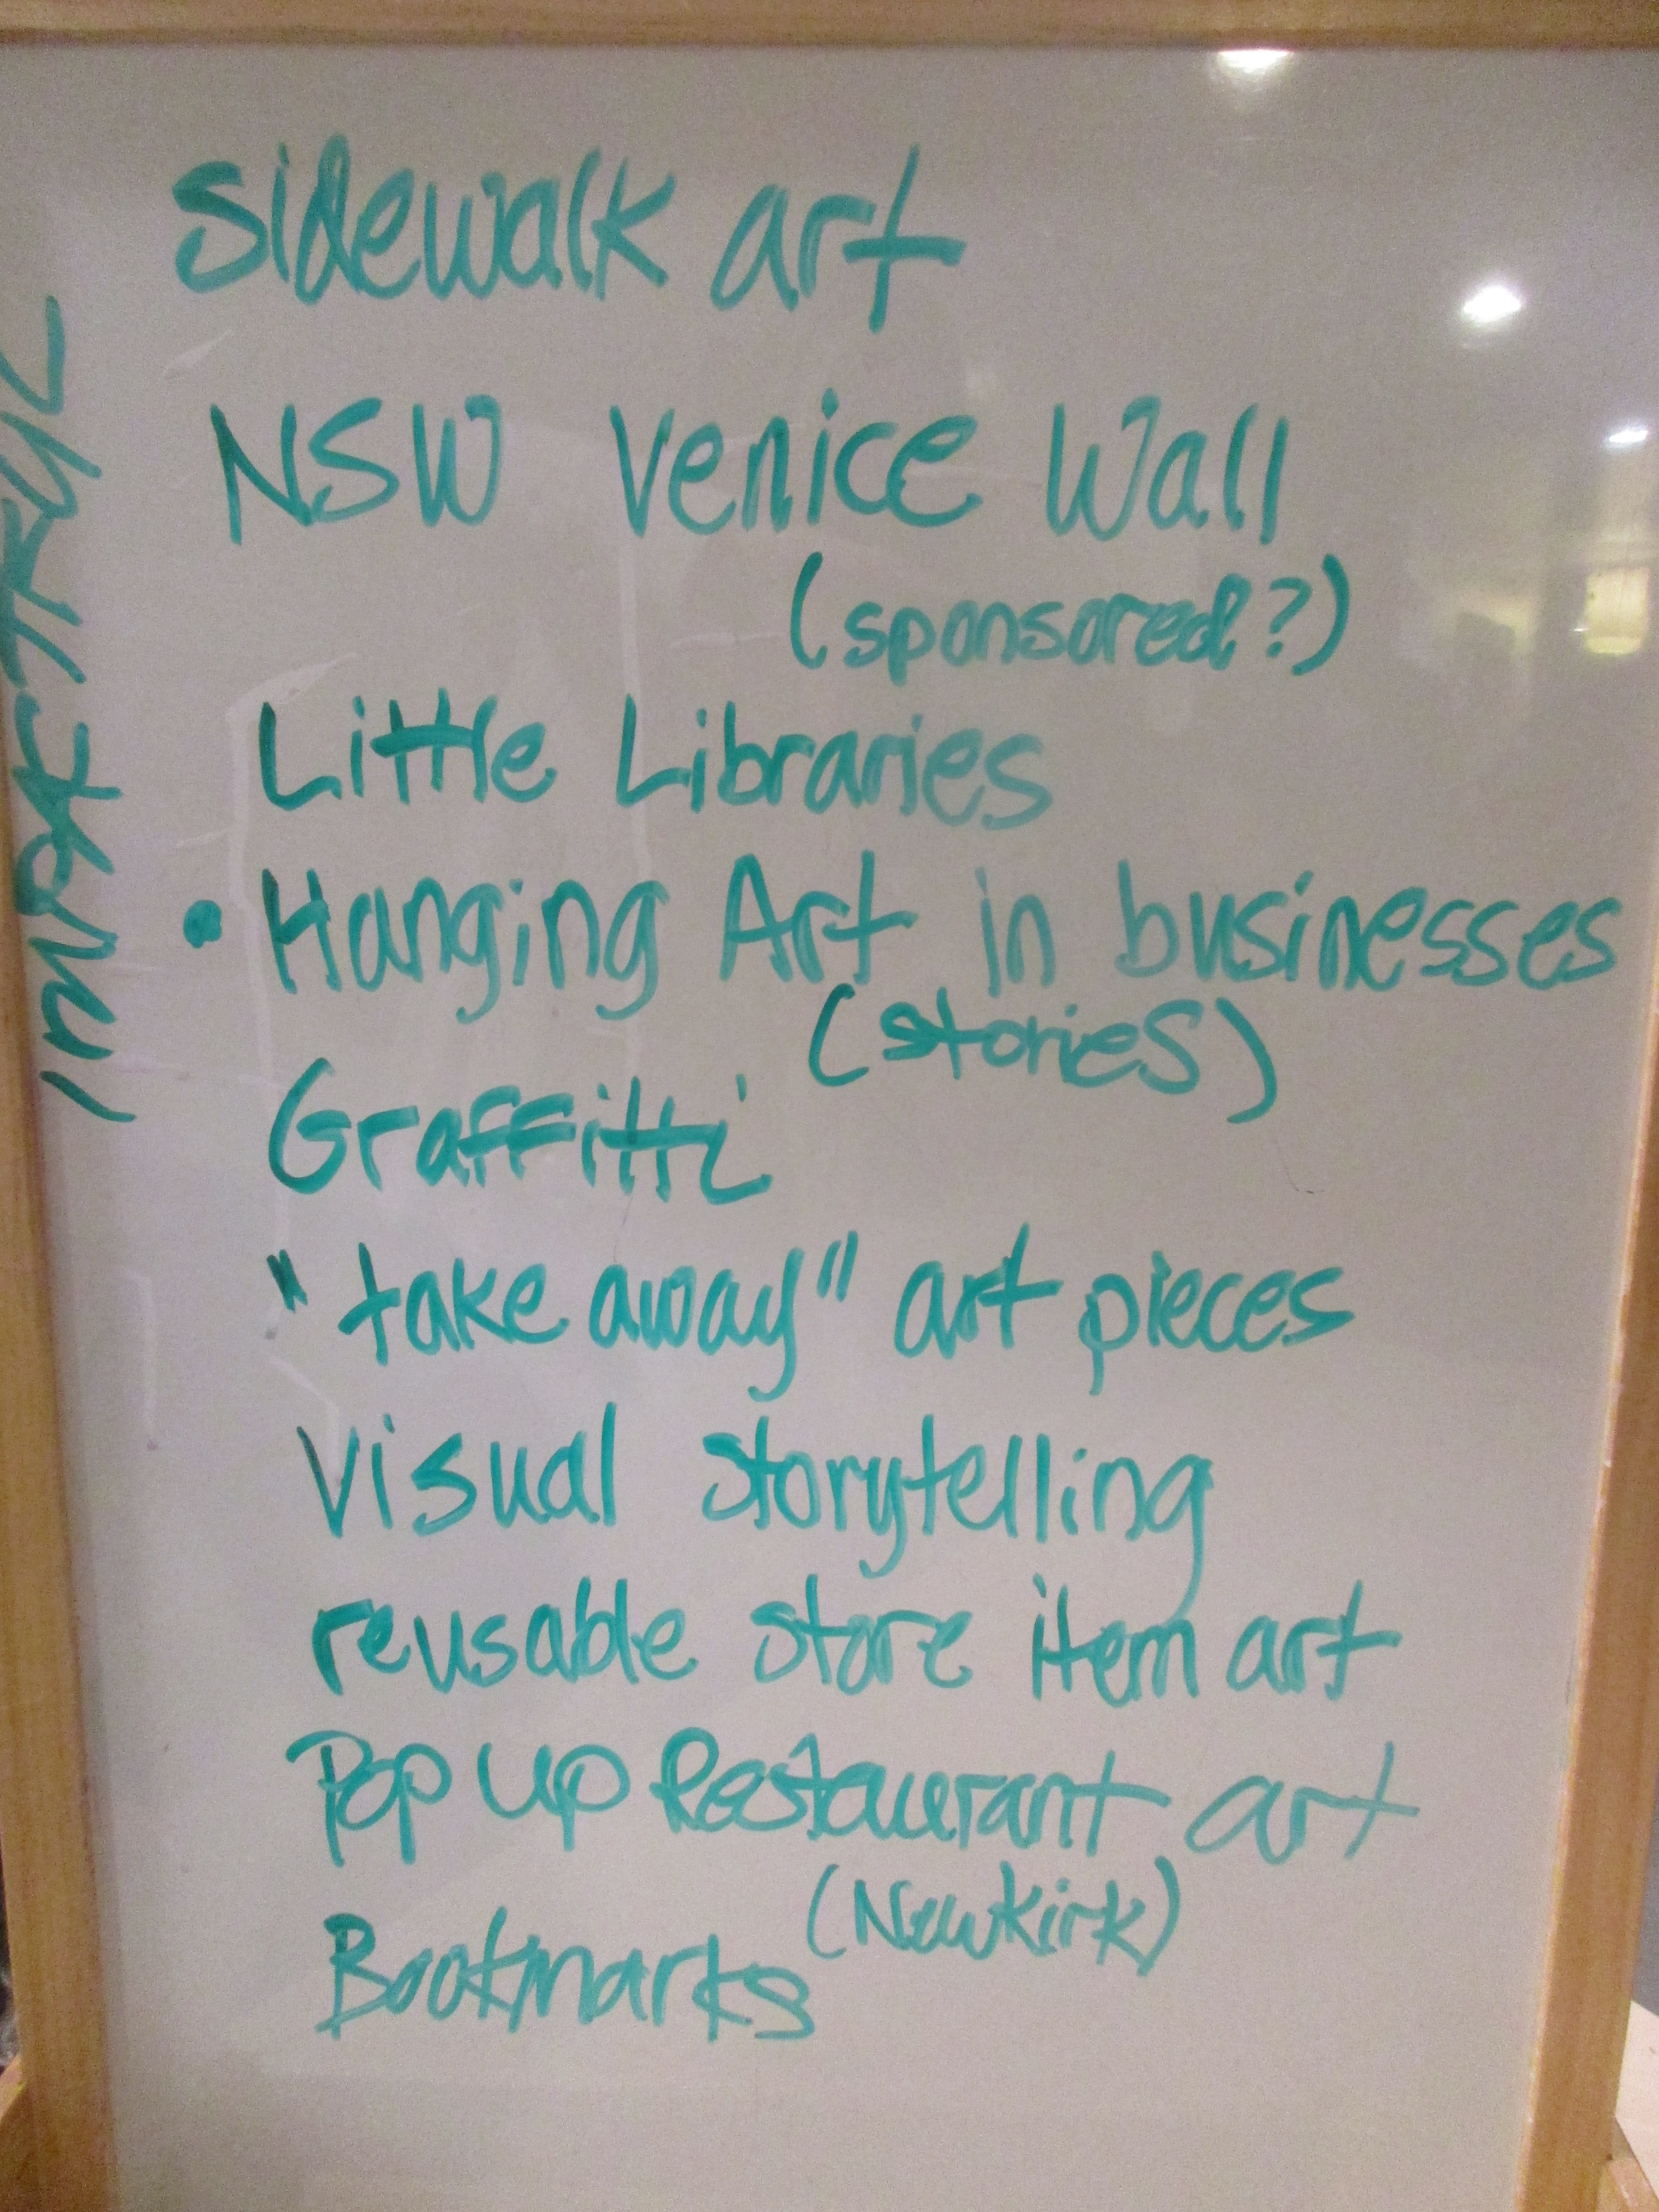 Sidewalk art
NSW Venice Wall
(sponsored?)
Little Libraries
• Hanging Art in businesses
(stories)
Graffitti
"take away" art pieces
Visual storytelling
reusable store item art
Pop up Restaurant art
(Newkirk)
Bookmarks
IMPACTFUL